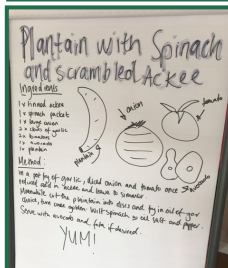 Plantain with Spinach
and scrambled Ackee
Ingredients
1x tinned ackee
1x spinach packet
1x large onion
2x cloves of garlic
2x tomatoes
1x avocado
1x plantain
onion
tomato
Plantain
avocado
Method:
In a pot fry of garlic, diced onion and tomato once
reduced add in ackee and leave to simmer
Meanwhile cut the plantain into discs and fry in oil of your
choice, turn once golden. Wilt spinach, salt and pepper.
Serve with avocado and feta if desired.
YUM!